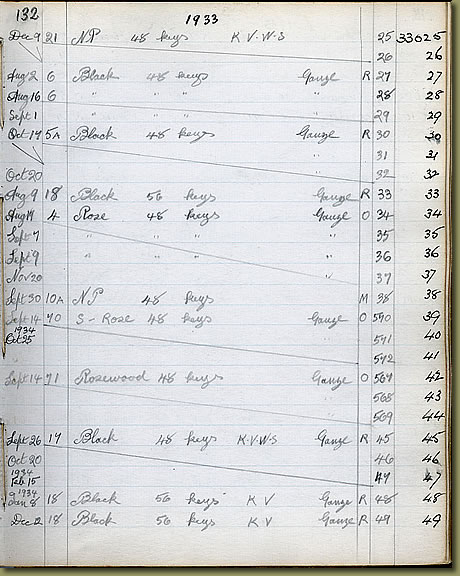 132 1933
Dec 9 21 NP 48 keys K.V.W.S 25 33025
26 26
Aug 2 6 Black 48 keys Gauze R 27 27
Aug 16 6 " " " 28 28
Sept 1 29 29
Oct 17 5A Black 48 keys Gauze R 30 30
31 31
Oct 20 32 32
Aug 9 18 Black 56 keys Gauze R 33 33
Aug 4 Rose 48 keys Gauze O 34 34
Sept 7 " " " 35 35
Sept 9 " " " 36 36
Nov 20 " 37 37
Sept 30 10A NP 48 keys M 38 38
Sept 14 70 S - Rose 48 keys Gauze O 570 39
1934
Oct 25 571 40
572 41
Sept 14 71 Rosewood 48 keys Gauze O 567 42
568 43
569 44
Sept 26 17 Black 48 keys K.V.W.S Gauze R 45 45
Oct 20 46 46
1934
Feb 15 47 47
1934
Jan 8 18 Black 56 keys KV Gauze R 48 48
Dec 2 18 Black 56 keys KV Gauze R 49 49